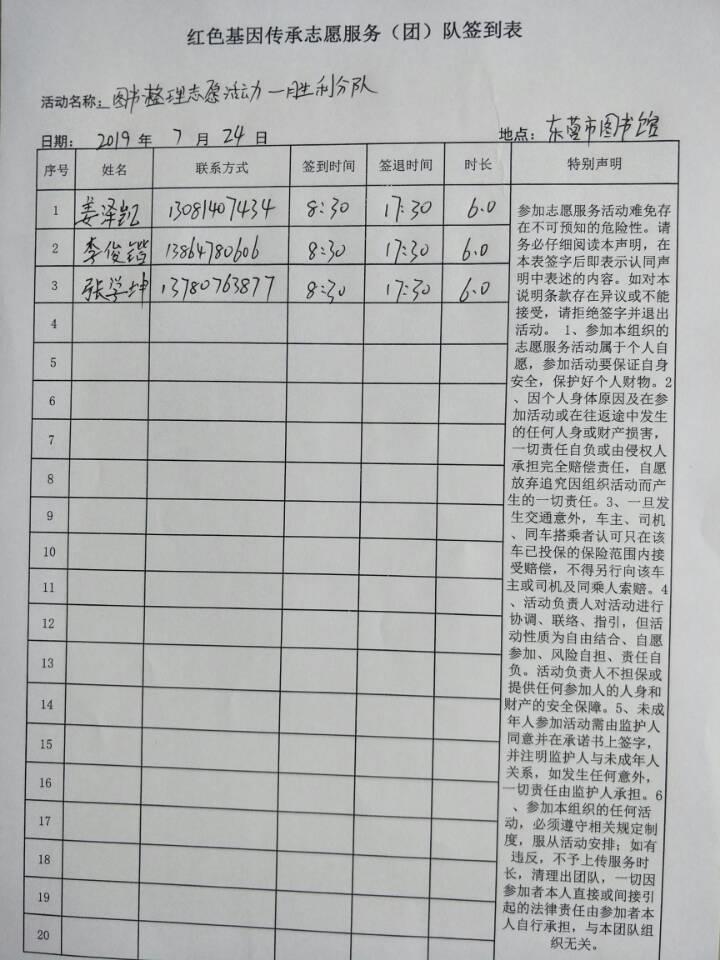 红色基因传承志愿服务（团）队签到表
活动名称：图书整理志愿活动—胜利分队
日期：2019年7月24日 地点：东营市图书馆
序号 姓名 联系方式 签到时间 签退时间 时长 特别声明
1 姜泽凯 13081407434 8:30 17:30 6.0
2 李俊锴 13864780606 8:30 17:30 6.0
3 张学坤 13780763877 8:30 17:30 6.0
4
5
6
7
8
9
10
11
12
13
14
15
16
17
18
19
20
参加志愿服务活动难免存
在不可预知的危险性。请
务必仔细阅读本声明，在
本表签字后即表示认同声
明中表述的内容。如对本
说明条款存在异议或不能
接受，请拒绝签字并退出
活动。 1、参加本组织的
志愿服务活动属于个人自
愿，参加活动要保证自身
安全，保护好个人财物。2
、因个人身体原因及在参
加活动或在往返途中发生
的任何人身或财产损害，
一切责任自负或由侵权人
承担完全赔偿责任，自愿
放弃追究因组织活动而产
生的一切责任。3、一旦发
生交通意外，车主、司机
、同车搭乘者认可只在该
车已投保的保险范围内接
受赔偿，不得另行向该车
主或司机及同乘人索赔。4
、活动负责人对活动进行
协调、联络、指引，但活
动性质为自由结合、自愿
参加、风险自担、责任自
负。活动负责人不担保或
提供任何参加人的人身和
财产的安全保障。5、未成
年人参加活动需由监护人
同意并在承诺书上签字，
并注明监护人与未成年人
关系，如发生任何意外，
一切责任由监护人承担。6
、参加本组织的任何活
动，必须遵守相关规定制
度，服从活动安排；如有
违反，不予上传服务时
长，清理出团队，一切因
参加者本人直接或间接引
起的法律责任由参加者本
人自行承担，与本团队组
织无关。